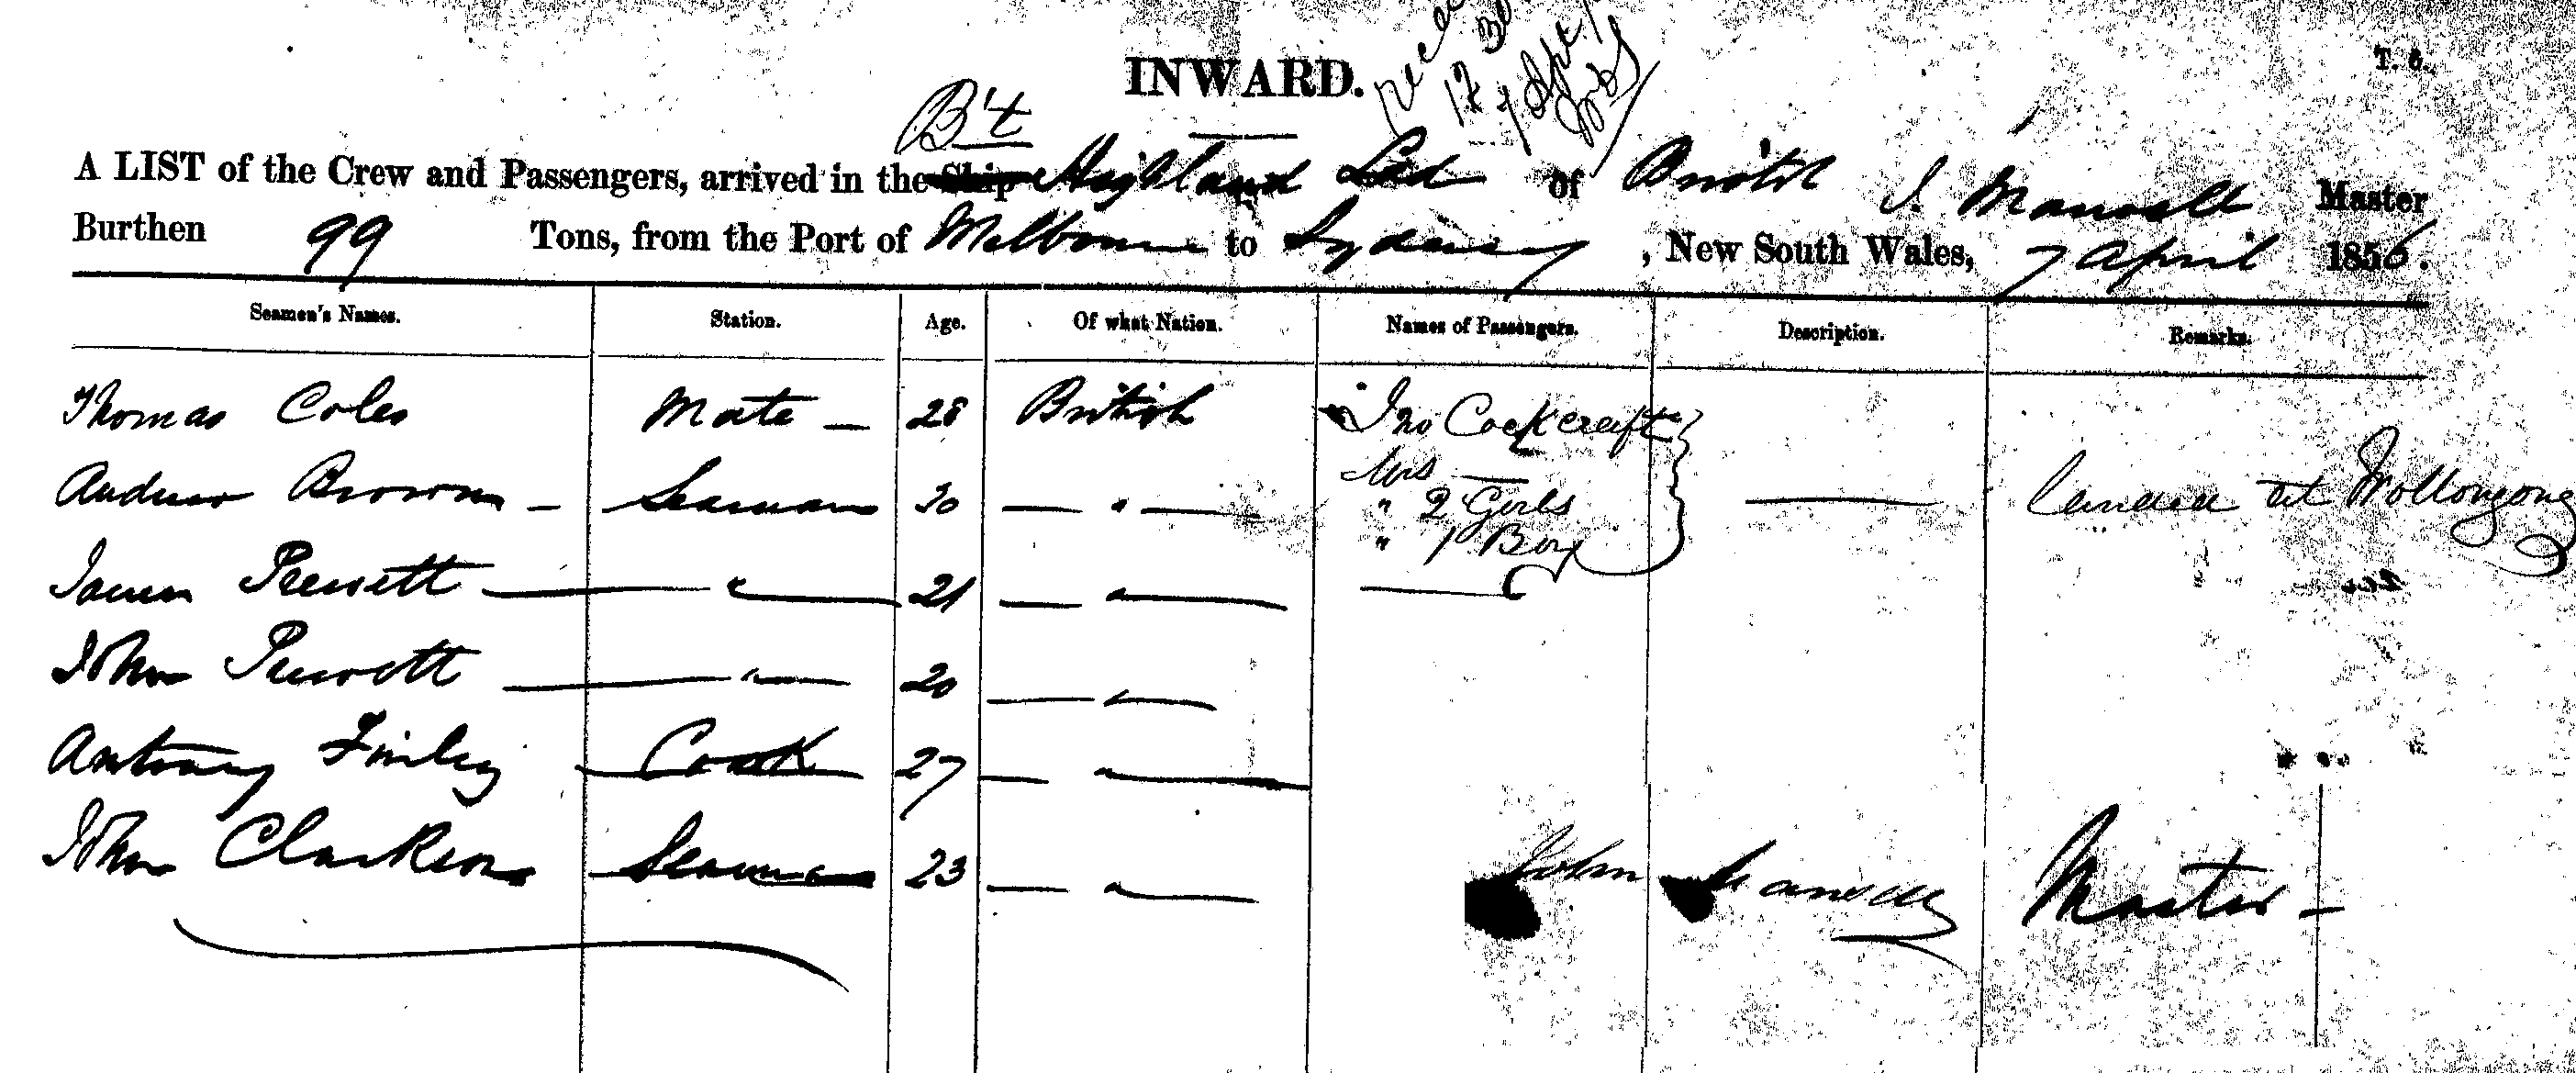 INWARD.
T. 6.
12
7 Apl
B't
A LIST of the Crew and Passengers, arrived in the Ship Highland Lad of Bristol J. Mansell Master
Burthen 99 Tons, from the Port of Melbourne to Sydney, New South Wales, 7 April 1856.
Seamen's Names. Station. Age. Of what Nation. Names of Passengers. Description. Remarks.
Thomas Coles Mate — 28 British Jno Cockcraft
Mrs —
Andrew Brown — Seaman 30 — " — " 2 Girls — Landed at Wollongong
" 1 Boy
James Prewett — " — 21 — " —
John Prewett — " — 20 — " —
Antony Finley — Cook — 27 — " —
John Clarkson — Seaman 23 — " — John Mansell Master —